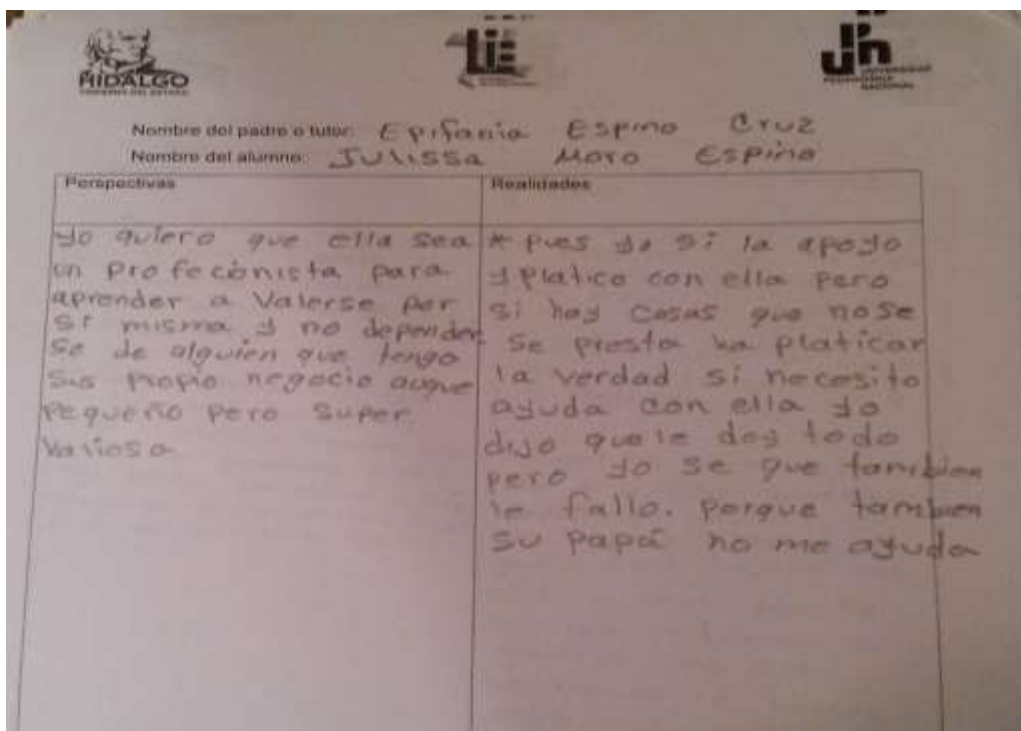 HIDALGO
GOBIERNO DEL ESTADO
LIE
UPN
UNIVERSIDAD
PEDAGÓGICA
NACIONAL
Nombre del padre o tutor: Epifania Espino Cruz
Nombre del alumno: Julissa Moro Espino
Perspectivas
yo quiero que ella sea
un profecionista para
aprender a Valerse por
sí misma y no depender
se de alguien que tengo
sis propio negocio auque
pequeño pero super
Valiosa
Realidades
* pues yo si la apoyo
y platico con ella pero
si hay cosas que nose
se presta ha platicar
la verdad si necesito
ayuda con ella yo
dijo que le doy todo
pero yo se que tambien
le fallo. porque tambien
su papá no me ayuda